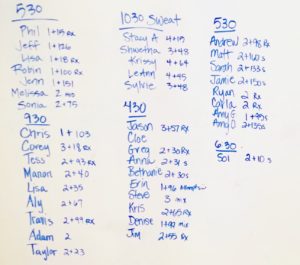 530
Phil 1+15 Rx
Jeff 1+126
Lisa 1+18 Rx
Robin 1+100 Rx
Jenn 1+151
Melissa 2
Sonia 2+75
930
Chris 1+103
Corey 3+18 Rx
Tess 2+93 Rx
Manon 2+40
Lisa 2+35
Aly 2+67
Travis 2+99 Rx
Adam 2
Taylor 2+23
1030 Sweat
Stacy A 4+15
Shwetha 3+48
Krissy 4+64
LeAnn 4+45
Sylvie 3+48
430
Jason 3+57 Rx
Cloe
Greg 2+30 Rx
Anna 2+31 s
Bethanie 2+30s
Erin 1+96
Steve 3 mix
Kris 2+65 Rx
Denise 1+92 mix
Jim 2+55 Rx
530
Andrew 2+98 Rx
Matt 2+100 s
Sarah 2+133s
Jamie 2+150s
Ryan 2 Rx
Carla 2 Rx
Amy G 1+95s
Amy O 2+135s
630
Sol 2+10 s